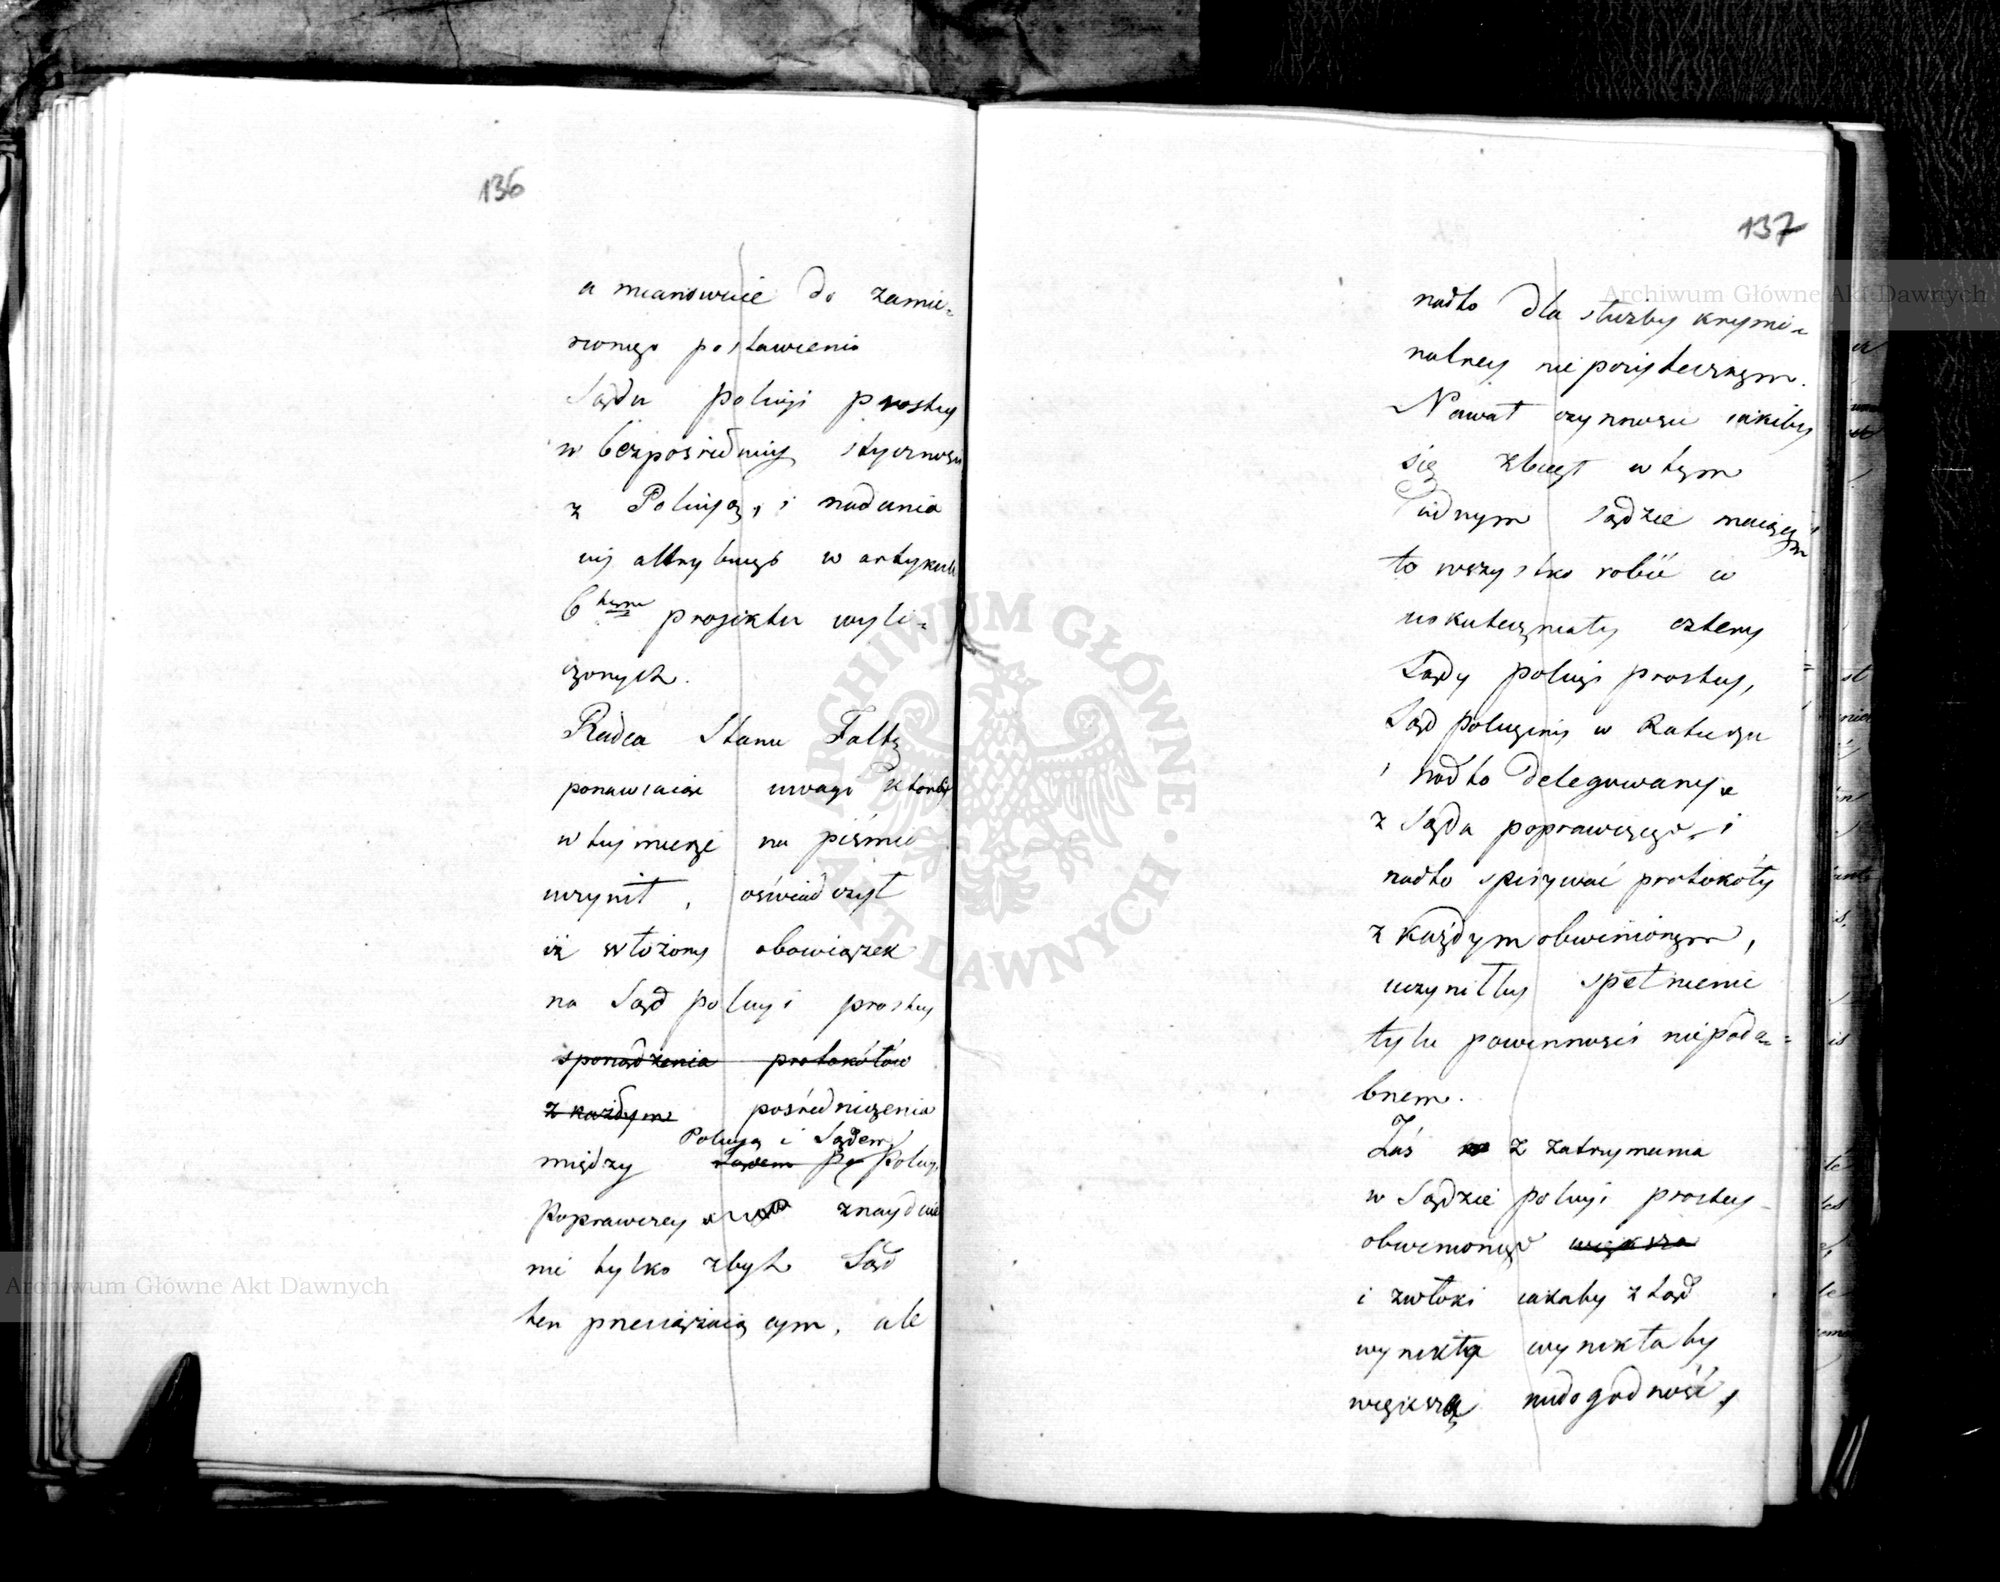 136
a mianowicie do zamie-
rzonego postawienia
Sądu policyi prostey
w bezpośredniey styczności
z Policyą, i nadania
iey attrybucyi w artykule
6tym projektu wyli-
czonych.
Radca Stanu Faltz
ponawiaiąc uwagi które
w tey mierze na piśmie
uczynił, oświadczył
iż włożony obowiązek
na Sąd policyi prostey
sporządzenia protokółów
z każdym pośredniczenia
Policyą i Sądem
między Sądem Po Policyi
Poprawczey znayduie
nie tylko zbyt Sąd
ten przeciążaiącym, ale
137
nadto dla służby krymi-
nalney niepożytecznym.
Nawał czynności iakiby
się zbiegł w tym
iednym sądzie maiącym
to wszystko robić co
uskuteczniały cztery
Sądy policyi prostey,
Sąd policyiny w Ratuszu
i nadto delegowany
z Sądu poprawczego i
nadto spisywać protokóły
z każdym obwinionym,
uczyniłby spełnienie
tylu powinności niepodo-
bnem.
Zaś z zatrzymania
w Sądzie policyi prostey
obwinionego większa
i zwłoki iakaby ztąd
wynikła wynikłaby
większa niedogodność,
Archiwum Główne Akt Dawnych
Archiwum Główne Akt Dawnych
ARCHIWUM GŁÓWNE AKT DAWNYCH